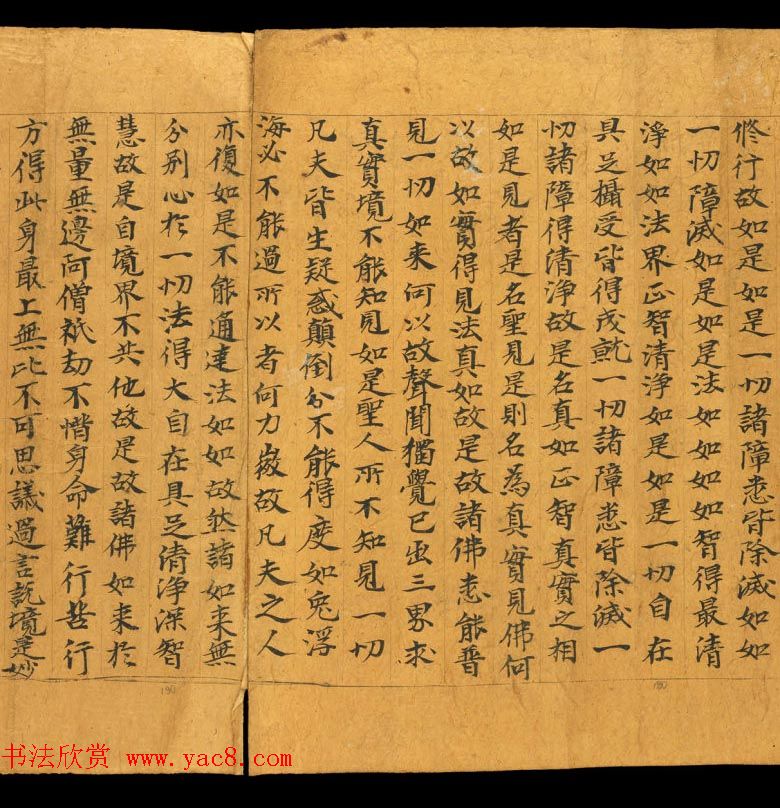 修行故如是如是一切諸障悉皆除滅如如
一切障滅如是如是法如如如如智得最清
淨如如法界正智清淨如是如是一切自在
具足攝受皆得成就一切諸障悉皆除滅一
切諸障得清淨故是名真如正智真實之相
如是見者是名聖見是則名為真實見佛何
以故如實得見法真如故是故諸佛悉能普
見一切如来何以故聲聞獨覺已出三界求
真實境不能知見如是聖人所不知見一切
凡夫皆生疑惑顛倒分不能得度如兎浮
海必不能過所以者何力微故凡夫之人
亦復如是不能通達法如如故然諸如来無
分别心於一切法得大自在具足清淨深智
慧故是自境界不共他故是故諸佛如来於
無量無邊阿僧祇劫不惜身命難行苦行
方得此身最上無比不可思議過言說境是妙
190
190
书法欣赏 www.yac8.com